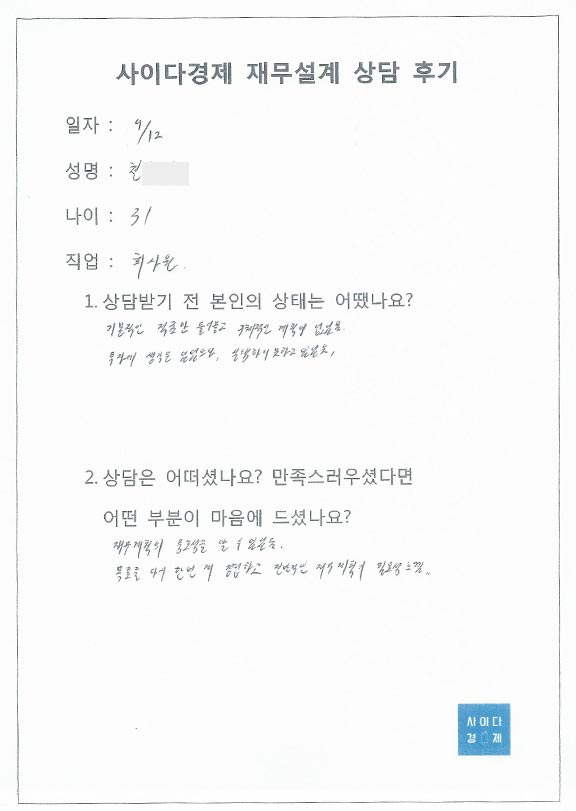 사이다경제 재무설계 상담 후기
일자 : 9/12
성명 :
나이 : 31
직업 : 회사원.
1. 상담받기 전 본인의 상태는 어땠나요?
기본적인 적금만 들어놓고 구체적인 계획이 없었음.
투자에 생각은 있었으나, 실행하지 못하고 있었음.
2. 상담은 어떠셨나요? 만족스러우셨다면
어떤 부분이 마음에 드셨나요?
재무계획의 중요성을 알 수 있었음.
목표를 다시 한번 재 정립하고 전반적인 재무 계획의 필요성 느낌..
사이다
경제